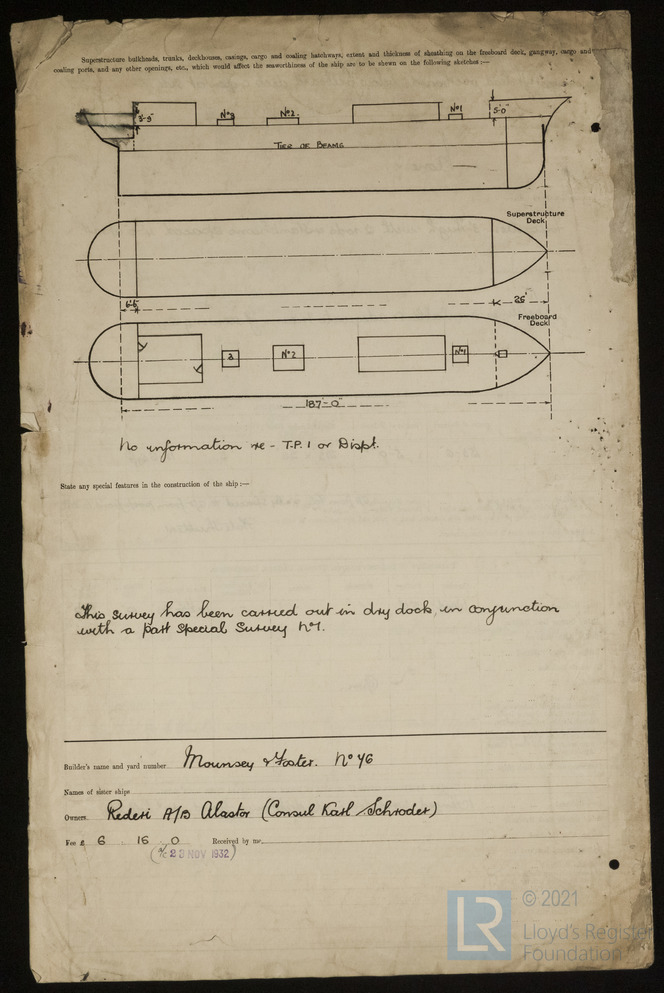 Superstructure bulkheads, trunks, deckhouses, casings, cargo and coaling hatchways, extent and thickness of sheathing on the freeboard deck, gangway, cargo and
coaling ports, and any other openings, etc., which would affect the seaworthiness of the ship are to be shewn on the following sketches:—
Nº3
Nº2
Nº1
5'-0"
TIER OF BEAMS
Superstructure
Deck
26'
6'-6"
Freeboard
Deck
3
Nº2
Nº1
187'-0"
No information re - T.P.1 or Displ.
State any special features in the construction of the ship:—
This survey has been carried out in dry dock, in conjunction
with a part Special Survey Nº1.
Builder's name and yard number Mounsey & Foster. Nº 46
Names of sister ships
Owners Rederi A/B Alastor (Consul Karl Schroder)
Fee £ 6 . 16 . 0 Received by me,
23 NOV 1932
LR
© 2021
Lloyd's Register
Foundation